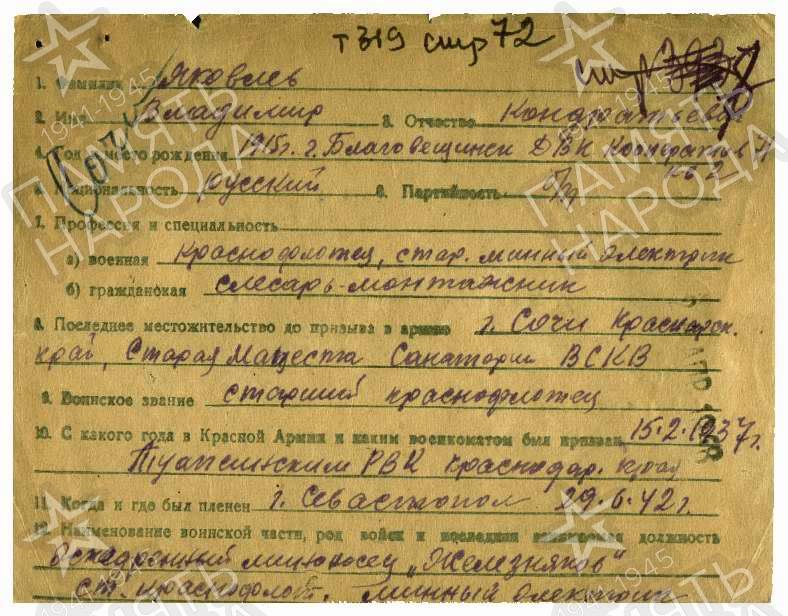 т 319 стр 72
стр
1. Фамилия Яковлев
2. Имя Владимир 3. Отчество Кондратьевич
4. Год и место рождения 1915 г. г. Благовещинск ДВК
5. Национальность русский 6. Партийность б/п
7. Профессия и специальность
а) военная Краснофлотец, стар. минный электрик
б) гражданская слесарь-монтажник
8. Последнее местожительство до призыва в армию г. Сочи Краснодарск.
край, Старая Мацеста Санатории ВСКВ
9. Воинское звание старший краснофлотец
10. С какого года в Красной Армии и каким военкоматом был призван 15.2.1937 г.
Туапсинским РВК Краснодар. края
11. Когда и где был пленен г. Севастопол 29.6.42 г.
12. Наименование воинской части, род войск и последняя занимаемая должность
Эскадренный миноносец „Железняков"
ст. краснофлот. минный электрик
ПАМЯТЬ НАРОДА
1941-1945